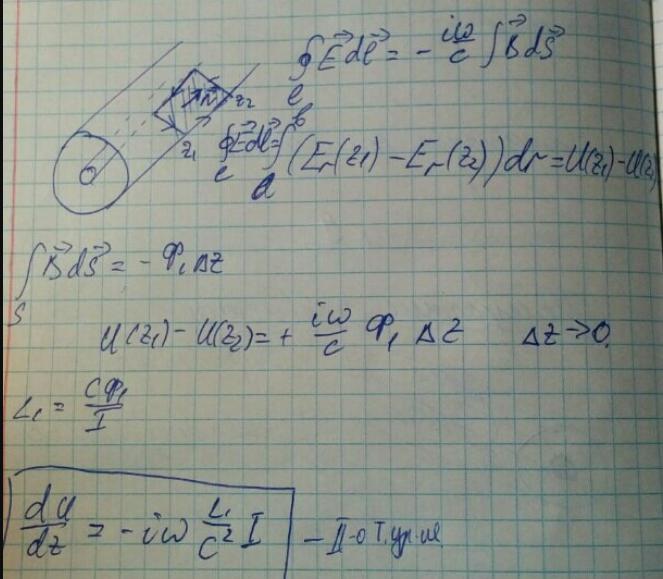 ∮E⃗dl⃗ = - iω/c ∫B⃗dS⃗
e
z₁ z₂
∮E⃗dl⃗ = ∫(Eᵣ(z₁) - Eᵣ(z₂))dr = U(z₁) - U(z₂
e a b
∫B⃗dS⃗ = - Φ₁ Δz
S
U(z₁) - U(z₂) = + iω/c Φ₁ Δz Δz → 0.
L₁ = cΦ₁/I
dU/dz = - iω L₁/c² I - II-о Т.ур-ие